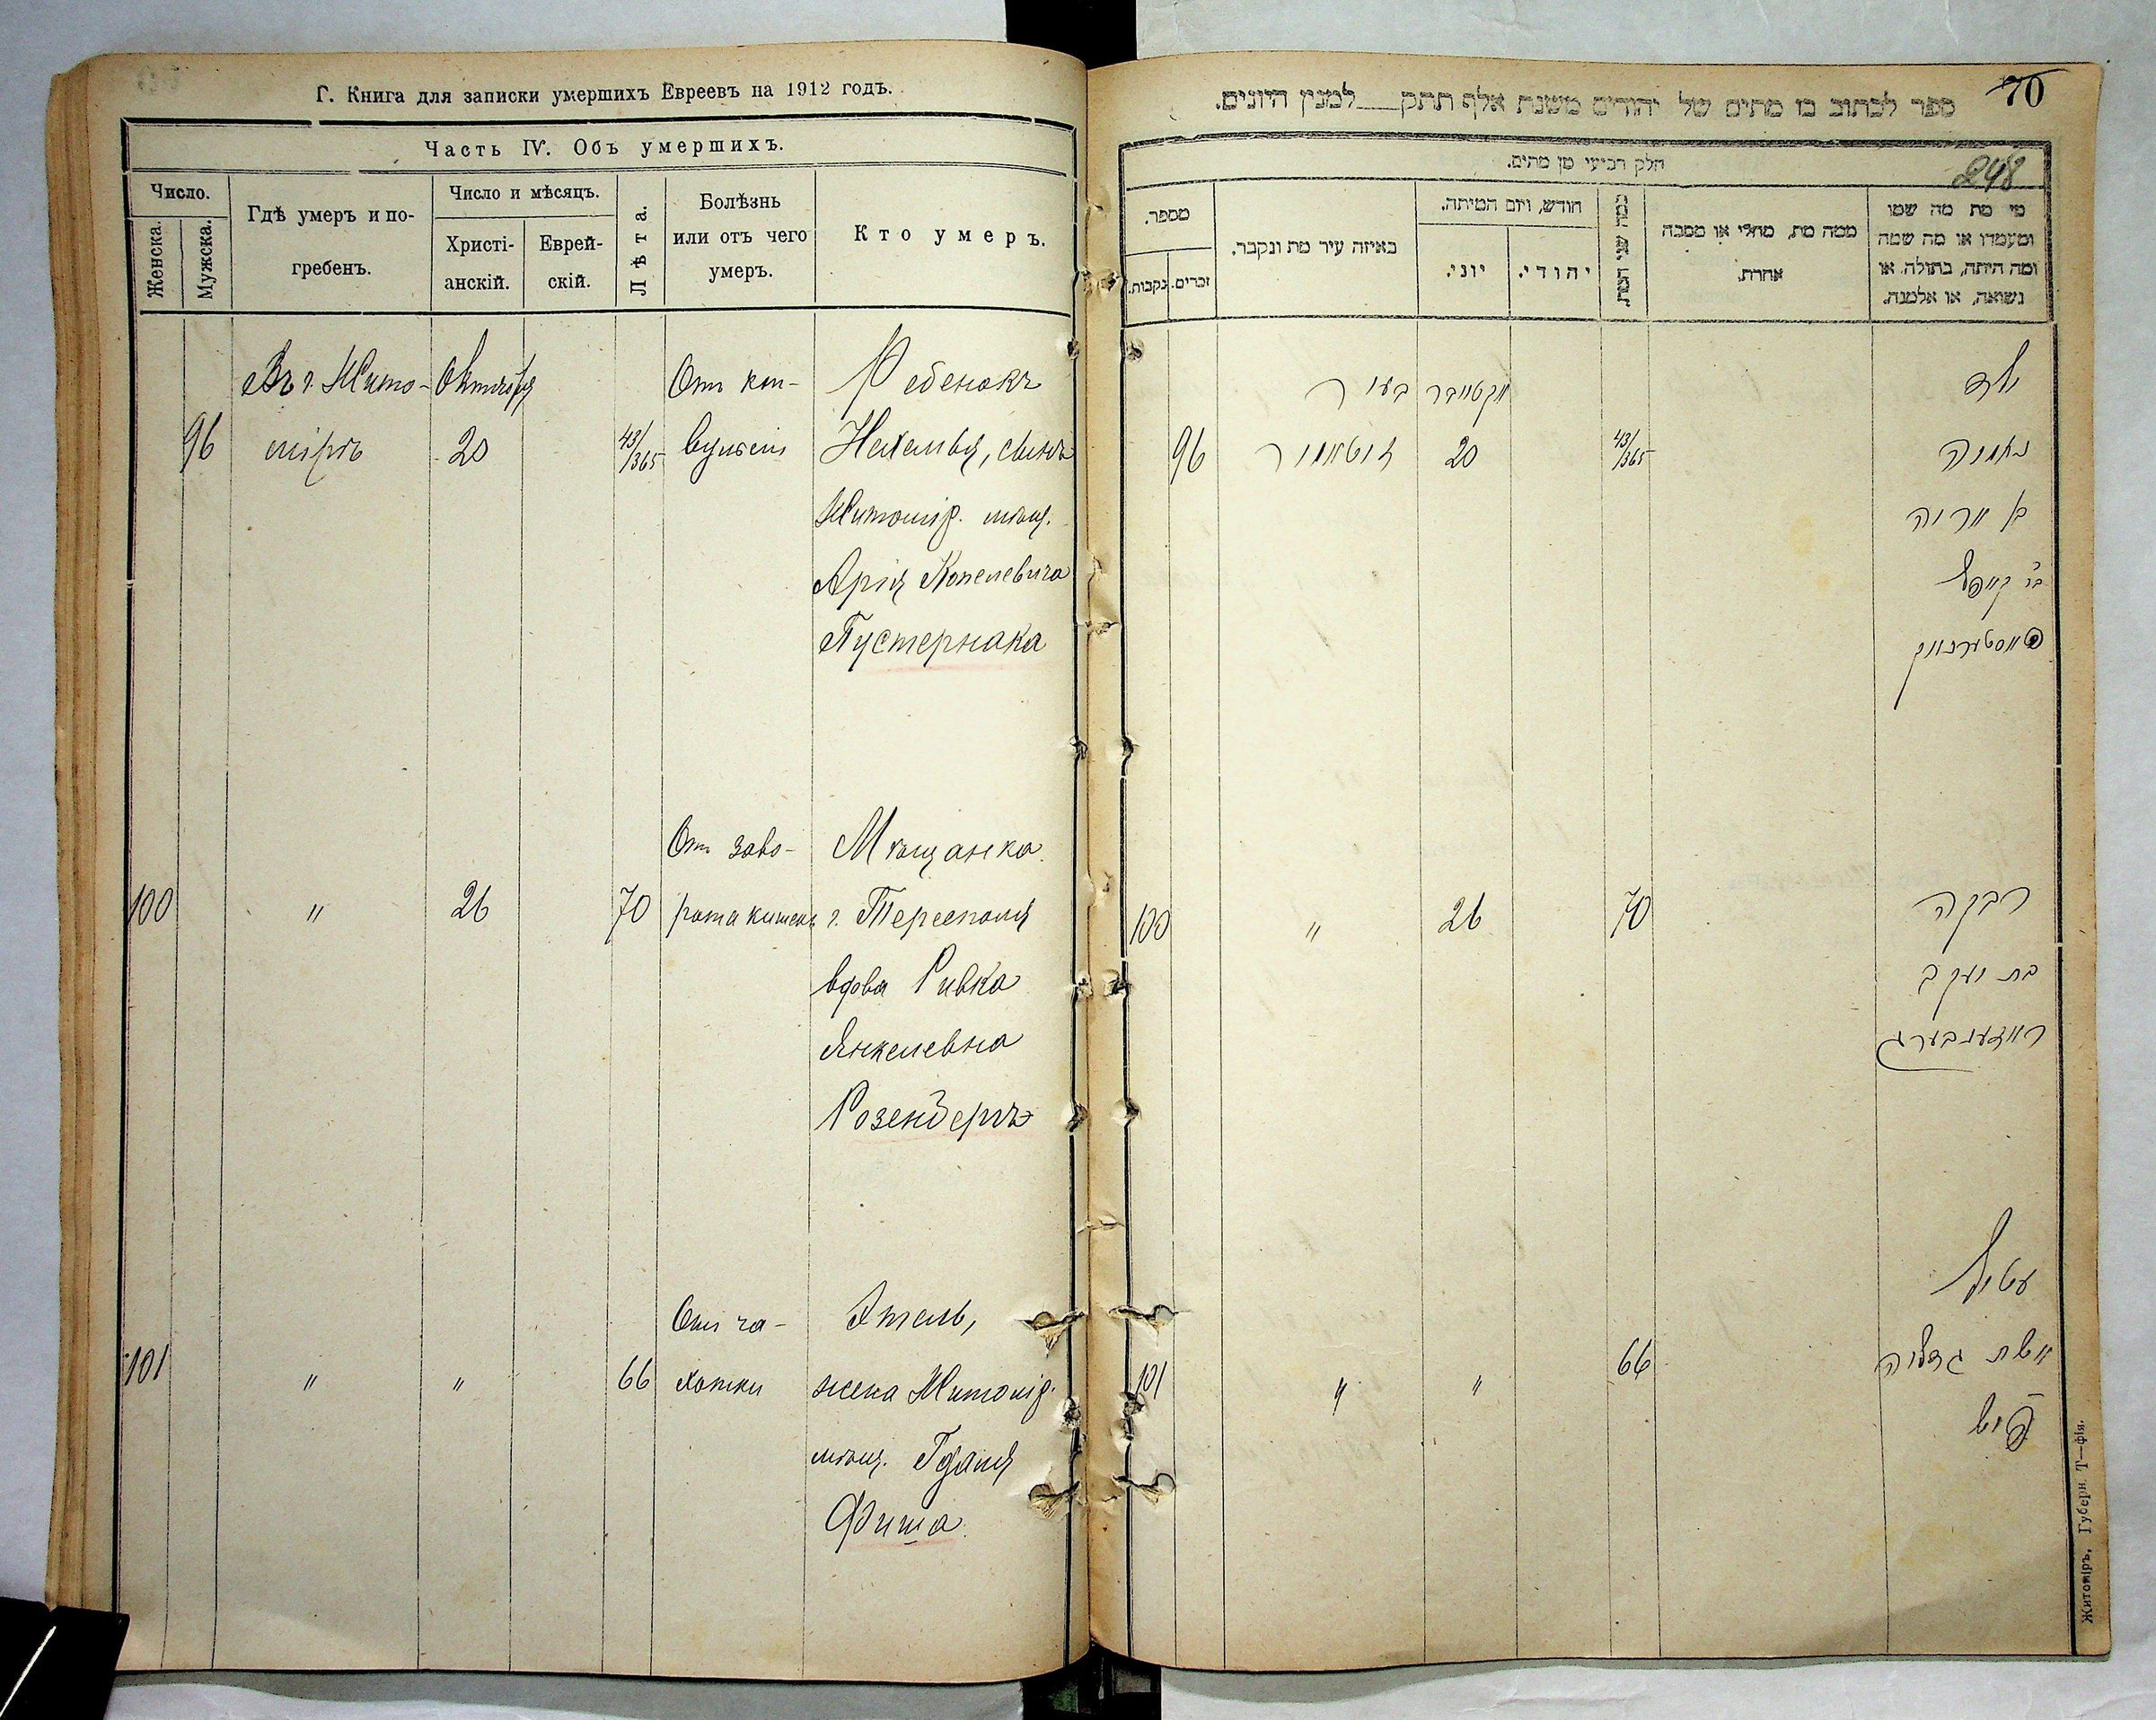 Г. Книга для записки умершихъ Евреевъ на 1912 годъ.
Часть IV. Объ умершихъ.
Число.
Женска.
Мужска.
Гдѣ умеръ и по-
гребенъ.
Число и мѣсяцъ.
Христі-
анскій.
Еврей-
скій.
Лѣта.
Болѣзнь
или отъ чего
умеръ.
Кто умеръ.
Въ г. Жито- Октября От кон- Ребенокъ
96 мірѣ 20 43/365 вульсіи Нехемья, сынъ
Житомір. мѣщ.
Арія Копелевича
Пустернака
От заво- Мѣщанка
100 " 26 70 рота кишекъ г. Тересполя
вдова Ривка
Янкелевна
Розенберг
От ча- Этель,
101 " " 66 хотки жена Житомір.
мѣщ. Гдаля
Фиша
70
ספר לכתוב בו מתים של יהודים משנת אלף תתק___למנין היונים.
248
חלק רביעי מן מתים.
מספר.
נקבות.
זכרים.
באיזה עיר מת ונקבר.
חודש, ויום המיתה.
יוני.
יהודי.
כמה שני המת.
ממה מת, מחלי או מסבה
אחרת.
מי מת מה שמו
ומעמדו או מה שמה
ומה היתה, בתולה או
נשואה, או אלמנה.
בעיר אקטאבר ילד
96 זיטאמיר 20 43/365 נחמיה
בן אריה
בר קאפל
פוסטערנאק
100 " 26 70 רבקה
בת יעקב
ראזענבערג
עטיל
101 " " 66 אשת גדליה
פיש
Житоміръ, Губерн. Т—фія.